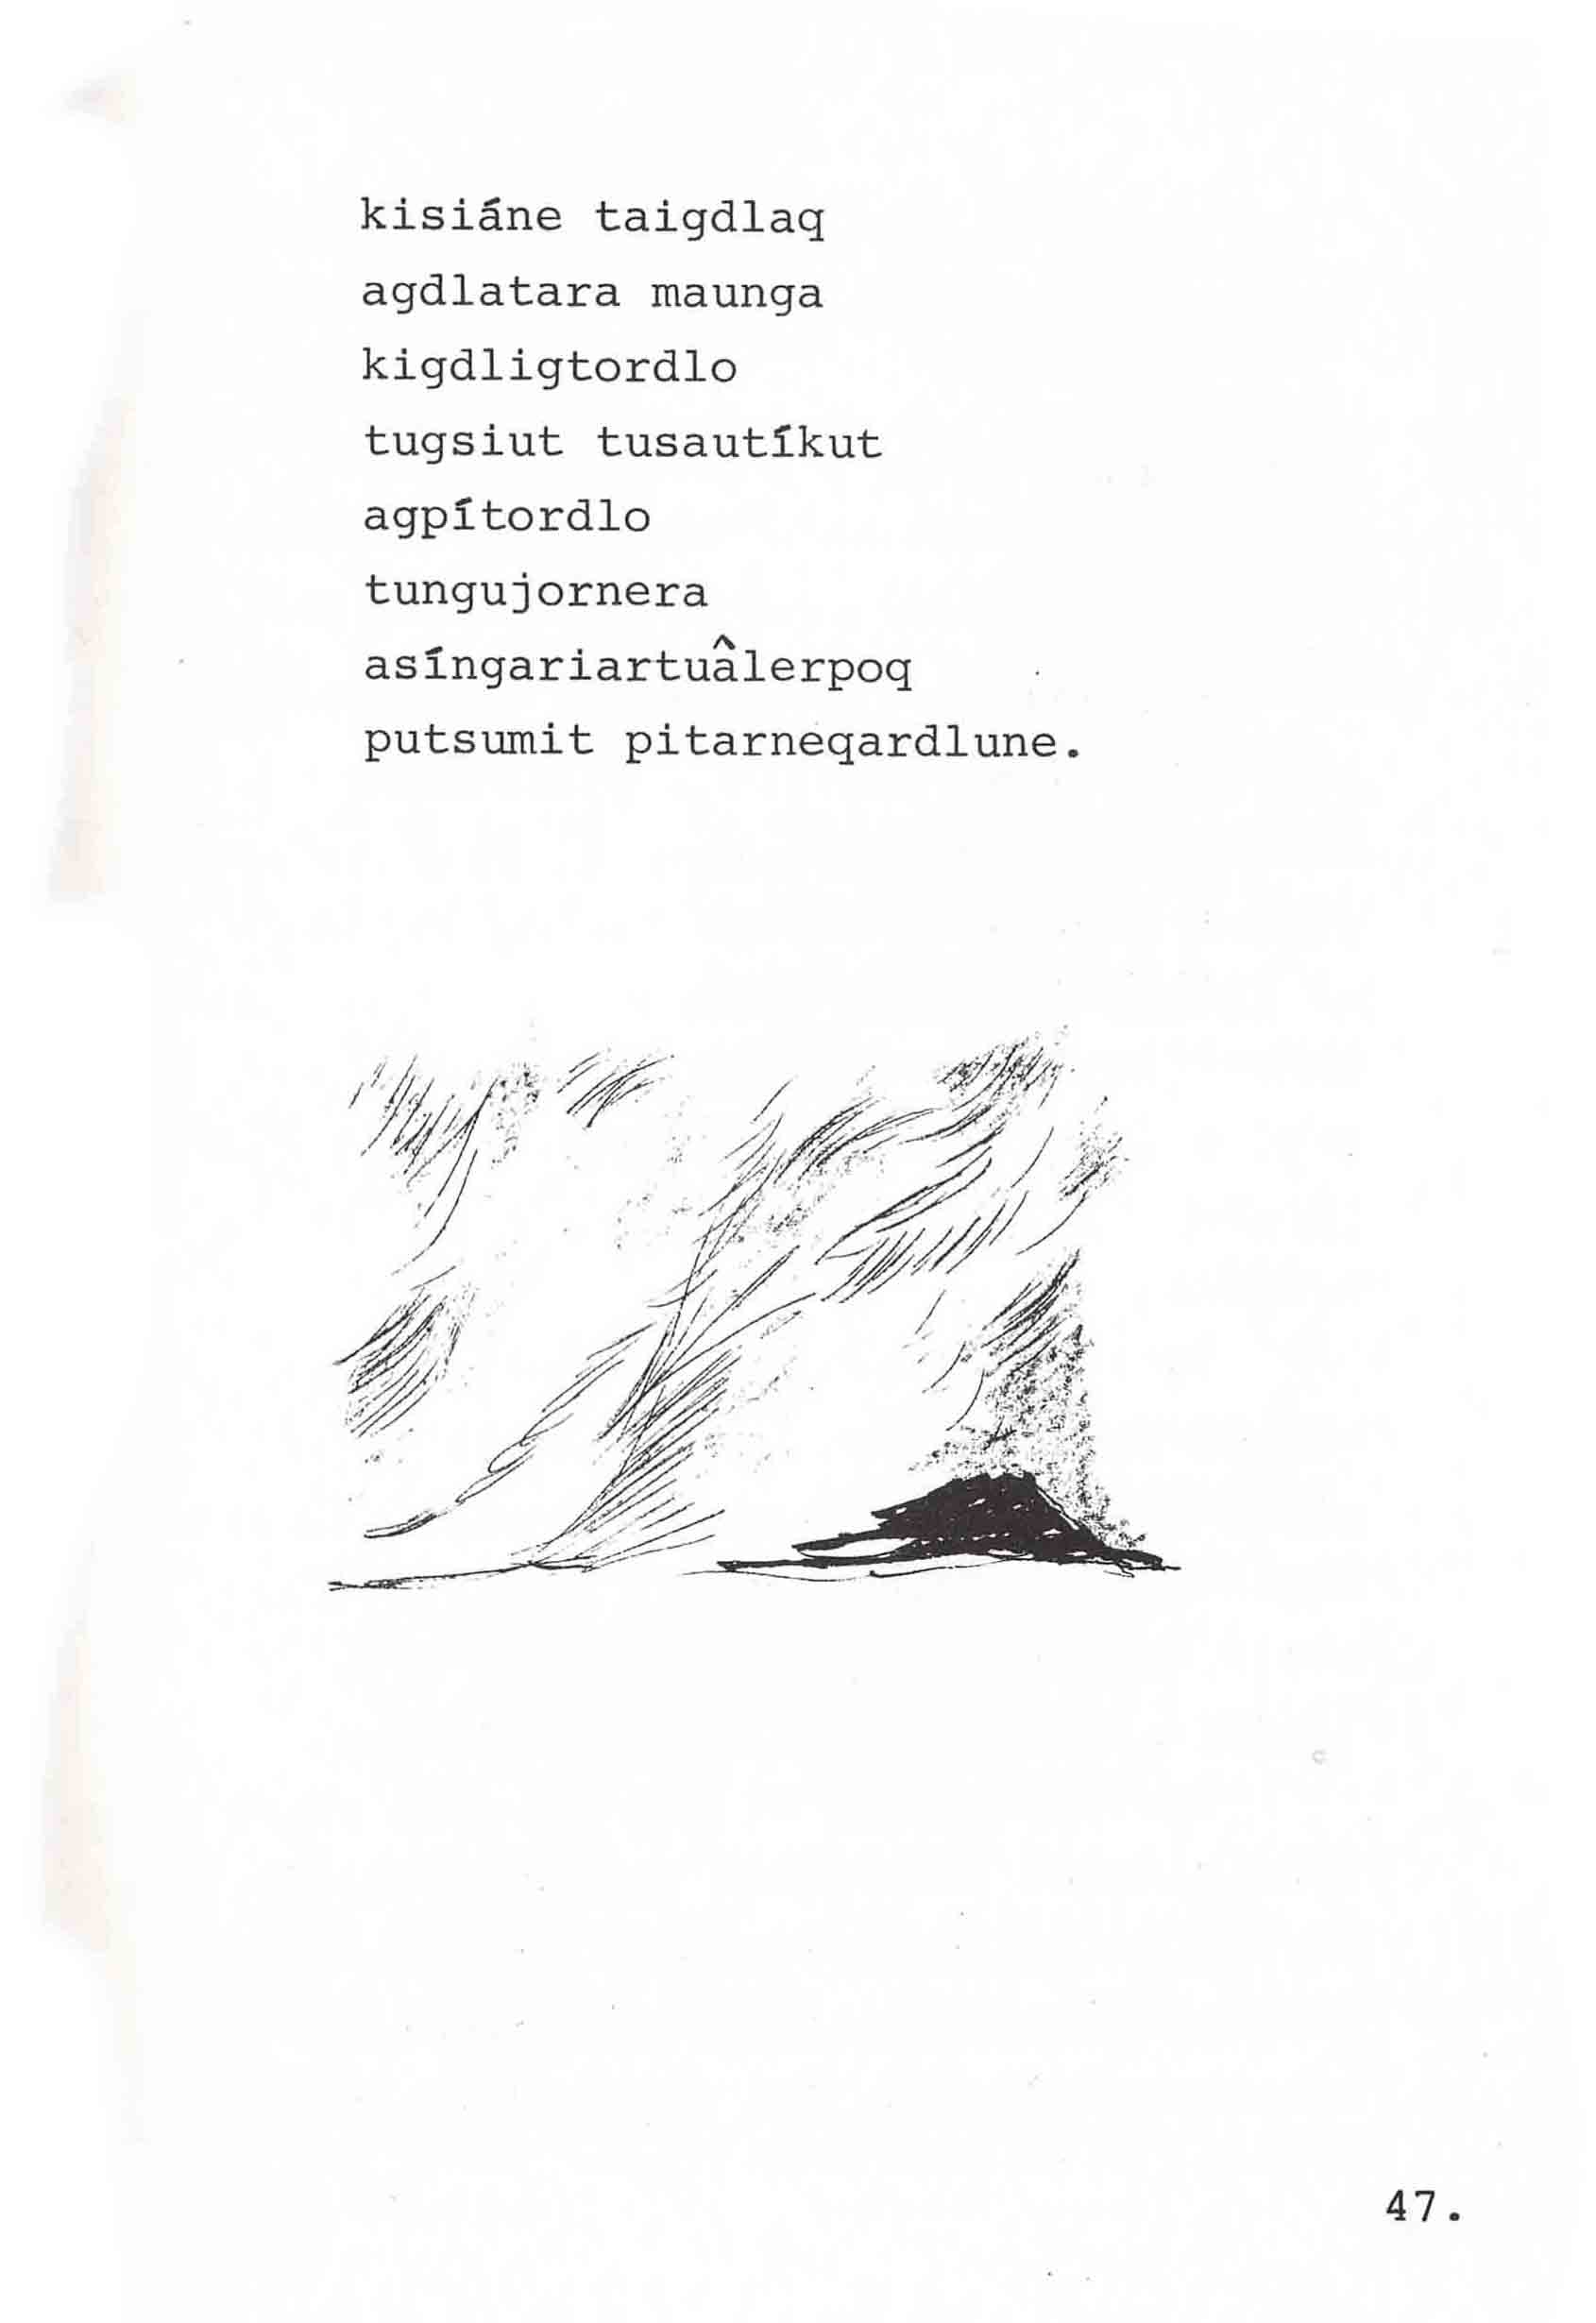 kisiáne taigdlaq
agdlatara maunga
kigdligtordlo
tugsiut tusautíkut
agpítordlo
tungujornera
asíngariartuâlerpoq
putsumit pitarneqardlune.
47.